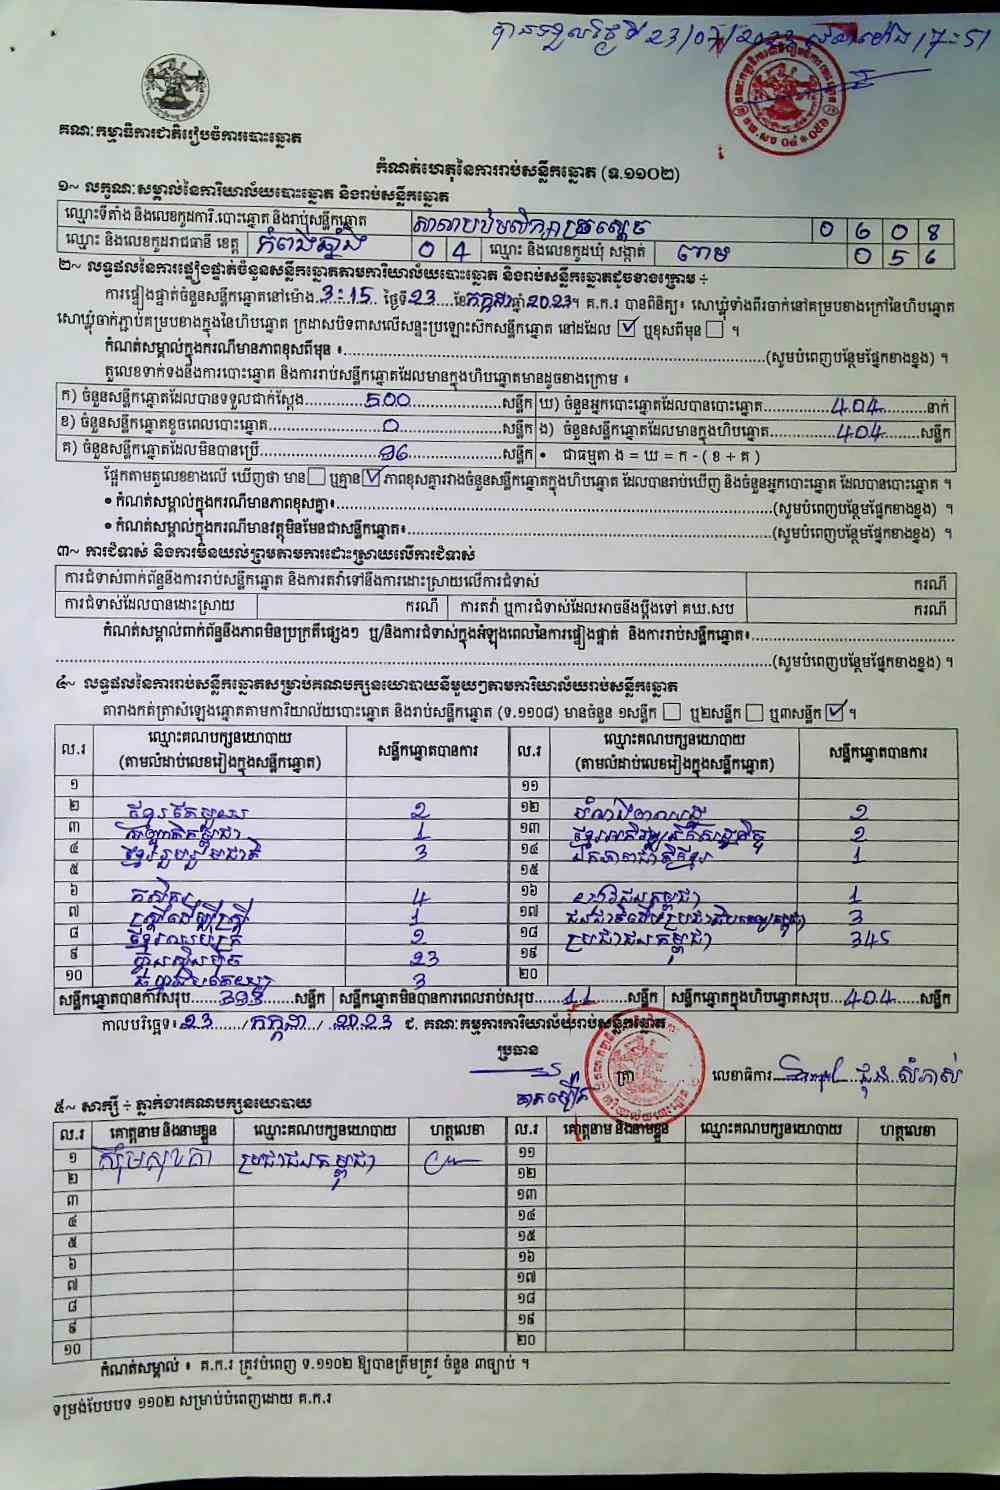 បានទទួលថ្ងៃទី 23/07/2023 វេលាម៉ោង 17:51
គណៈកម្មាធិការជាតិរៀបចំការបោះឆ្នោត
កំណត់ហេតុនៃការរាប់សន្លឹកឆ្នោត (ទ.១១០២)
១~ លក្ខណៈសម្គាល់នៃការិយាល័យបោះឆ្នោត និងរាប់សន្លឹកឆ្នោត
ឈ្មោះទីតាំង និងលេខកូដការិ.បោះឆ្នោត និងរាប់សន្លឹកឆ្នោត 0 6 0 8
ឈ្មោះ និងលេខកូដរាជធានី ខេត្ត កំពង់ឆ្នាំង 0 4 ឈ្មោះ និងលេខកូដឃុំ សង្កាត់ ពាម 0 5 6
២~ លទ្ធផលនៃការផ្ទៀងផ្ទាត់ចំនួនសន្លឹកឆ្នោតតាមការិយាល័យបោះឆ្នោត និងរាប់សន្លឹកឆ្នោតដូចខាងក្រោម ÷
ការផ្ទៀងផ្ទាត់ចំនួនសន្លឹកឆ្នោតនៅម៉ោង 3:15 ថ្ងៃទី 23 ខែ កក្កដា ឆ្នាំ 2023។ គ.ក.រ បានពិនិត្យ៖ សោឃ្លុំទាំងពីរចាក់នៅគម្របខាងក្រៅនៃហិបឆ្នោត
សោឃ្លុំចាក់ភ្ជាប់គម្របខាងក្នុងនៃហិបឆ្នោត ក្រដាសបិទពាសលើសន្ទះប្រឡោះស៊កសន្លឹកឆ្នោត នៅដដែល ☑ ឬខុសពីមុន ☐ ។
កំណត់សម្គាល់ក្នុងករណីមានភាពខុសពីមុន ៖ (សូមបំពេញបន្ថែមផ្នែកខាងខ្នង) ។
តួលេខទាក់ទងនឹងការបោះឆ្នោត និងការរាប់សន្លឹកឆ្នោតដែលមានក្នុងហិបឆ្នោតមានដូចខាងក្រោម ៖
ក) ចំនួនសន្លឹកឆ្នោតដែលបានទទួលជាក់ស្តែង 500 សន្លឹក ឃ) ចំនួនអ្នកបោះឆ្នោតដែលបានបោះឆ្នោត 404 នាក់
ខ) ចំនួនសន្លឹកឆ្នោតខូចពេលបោះឆ្នោត 0 សន្លឹក ង) ចំនួនសន្លឹកឆ្នោតដែលមានក្នុងហិបឆ្នោត 404 សន្លឹក
គ) ចំនួនសន្លឹកឆ្នោតដែលមិនបានប្រើ 96 សន្លឹក • ជាធម្មតា ង = ឃ = ក - ( ខ + គ )
ផ្អែកតាមតួលេខខាងលើ ឃើញថា មាន ☐ ឬគ្មាន ☑ ភាពខុសគ្នារវាងចំនួនសន្លឹកឆ្នោតក្នុងហិបឆ្នោត ដែលបានរាប់ឃើញ និងចំនួនអ្នកបោះឆ្នោត ដែលបានបោះឆ្នោត ។
• កំណត់សម្គាល់ក្នុងករណីមានភាពខុសគ្នា៖ (សូមបំពេញបន្ថែមផ្នែកខាងខ្នង) ។
• កំណត់សម្គាល់ក្នុងករណីមានវត្ថុមិនមែនជាសន្លឹកឆ្នោត៖ (សូមបំពេញបន្ថែមផ្នែកខាងខ្នង) ។
៣~ ការជំទាស់ និងការមិនយល់ព្រមតាមការដោះស្រាយលើការជំទាស់
ការជំទាស់ពាក់ព័ន្ធនឹងការរាប់សន្លឹកឆ្នោត និងការតវ៉ាទៅនឹងការដោះស្រាយលើការជំទាស់ ករណី
ការជំទាស់ដែលបានដោះស្រាយ ករណី ការតវ៉ា ឬការជំទាស់ដែលអាចនឹងប្តឹងទៅ គឃ.សប ករណី
កំណត់សម្គាល់ពាក់ព័ន្ធនឹងភាពមិនប្រក្រតីផ្សេងៗ ឬ/និងការជំទាស់ក្នុងអំឡុងពេលនៃការផ្ទៀងផ្ទាត់ និងការរាប់សន្លឹកឆ្នោត៖
(សូមបំពេញបន្ថែមផ្នែកខាងខ្នង) ។
៤~ លទ្ធផលនៃការរាប់សន្លឹកឆ្នោតសម្រាប់គណបក្សនយោបាយនីមួយៗតាមការិយាល័យរាប់សន្លឹកឆ្នោត
តារាងកត់ត្រាសំឡេងឆ្នោតតាមការិយាល័យបោះឆ្នោត និងរាប់សន្លឹកឆ្នោត (ទ.១១០៨) មានចំនួន ១សន្លឹក ☐ ឬ២សន្លឹក ☐ ឬ៣សន្លឹក ☑ ។
ល.រ ឈ្មោះគណបក្សនយោបាយ (តាមលំដាប់លេខរៀងក្នុងសន្លឹកឆ្នោត) សន្លឹកឆ្នោតបានការ ល.រ ឈ្មោះគណបក្សនយោបាយ (តាមលំដាប់លេខរៀងក្នុងសន្លឹកឆ្នោត) សន្លឹកឆ្នោតបានការ
១ ១១
២ ខ្មែរតែមួយ 2 ១២ 2
៣ 1 ១៣ ខ្មែរអភិវឌ្ឍន៍សេដ្ឋកិច្ច 2
៤ ខ្មែររួបរួមជាតិ 3 ១៤ ឯកភាពជាតិខ្មែរ 1
៥ ១៥
៦ កសិករ 4 ១៦ 1
៧ ស្ត្រីដើម្បីស្ត្រី 1 ១៧ 3
៨ 2 ១៨ ប្រជាជនកម្ពុជា 345
៩ ហ្វ៊ុនស៊ិនប៉ិច 23 ១៩
១០ 3 ២០
សន្លឹកឆ្នោតបានការសរុប 393 សន្លឹក សន្លឹកឆ្នោតមិនបានការពេលរាប់សរុប 11 សន្លឹក សន្លឹកឆ្នោតក្នុងហិបឆ្នោតសរុប 404 សន្លឹក
កាលបរិច្ឆេទ៖ 23 / កក្កដា / 2023 ជ. គណៈកម្មការការិយាល័យរាប់សន្លឹកឆ្នោត
ប្រធាន
ត្រា លេខាធិការ
៥~ សាក្សី ÷ ភ្នាក់ងារគណបក្សនយោបាយ
ល.រ គោត្តនាម និងនាមខ្លួន ឈ្មោះគណបក្សនយោបាយ ហត្ថលេខា ល.រ គោត្តនាម និងនាមខ្លួន ឈ្មោះគណបក្សនយោបាយ ហត្ថលេខា
១ ប្រជាជនកម្ពុជា ១១
២ ១២
៣ ១៣
៤ ១៤
៥ ១៥
៦ ១៦
៧ ១៧
៨ ១៨
៩ ១៩
១០ ២០
កំណត់សម្គាល់ ៖ គ.ក.រ ត្រូវបំពេញ ទ.១១០២ ឱ្យបានត្រឹមត្រូវ ចំនួន ៣ច្បាប់ ។
ទម្រង់បែបបទ ១១០២ សម្រាប់បំពេញដោយ គ.ក.រ